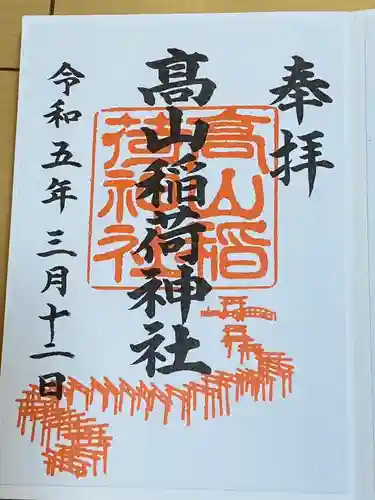 奉拝
髙山稲荷神社
令和五年三月十二日
高山稲
荷神社